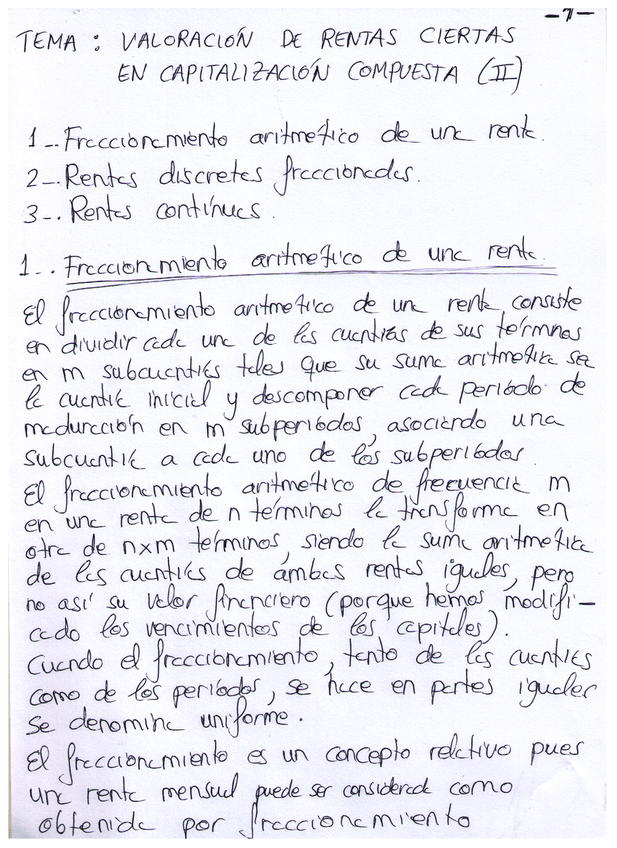 -7-
TEMA : VALORACIÓN DE RENTAS CIERTAS
EN CAPITALIZACIÓN COMPUESTA (II)
1-. Fraccionamiento aritmético de una renta.
2-. Rentas discretas fraccionadas.
3-. Rentas continuas.
1-. Fraccionamiento aritmético de una renta.
El fraccionamiento aritmético de una renta consiste
en dividir cada una de las cuantías de sus términos
en m subcuantías tales que su suma aritmética sea
la cuantía inicial y descomponer cada período de
maduración en m subperíodos, asociando una
subcuantía a cada uno de los subperíodos.
El fraccionamiento aritmético de frecuencia m
en una renta de n términos la transforma en
otra de nxm términos, siendo la suma aritmética
de las cuantías de ambas rentas iguales, pero
no así su valor financiero (porque hemos modifi-
cado los vencimientos de los capitales).
Cuando el fraccionamiento, tanto de las cuantías
como de los períodos, se hace en partes iguales
se denomina uniforme.
El fraccionamiento es un concepto relativo pues
una renta mensual puede ser considerada como
obtenida por fraccionamiento